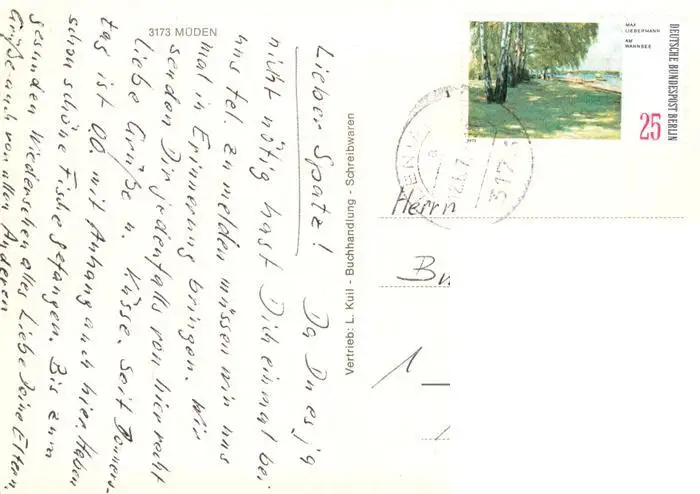 3173 MÜDEN
Lieber Spatz! Da Du es ja
nicht nötig hast Dich einmal bei
uns tel. zu melden müssen wir uns
mal in Erinnerung bringen. Wir
senden Dir jedenfalls von hier recht
liebe Grüße u. Küsse. Seit Donners-
tag ist OO mit Anhang auch hier. Haben
schon schöne Fische gefangen. Bis zum
gesunden Wiedersehen alles Liebe Deine Eltern.
Grüße auch von allen Anderen
Vertrieb: L. Kuil - Buchhandlung - Schreibwaren
MAX
LIEBERMANN
AM
WANNSEE
DEUTSCHE BUNDESPOST BERLIN
25
1972
317
Herrn
B
1